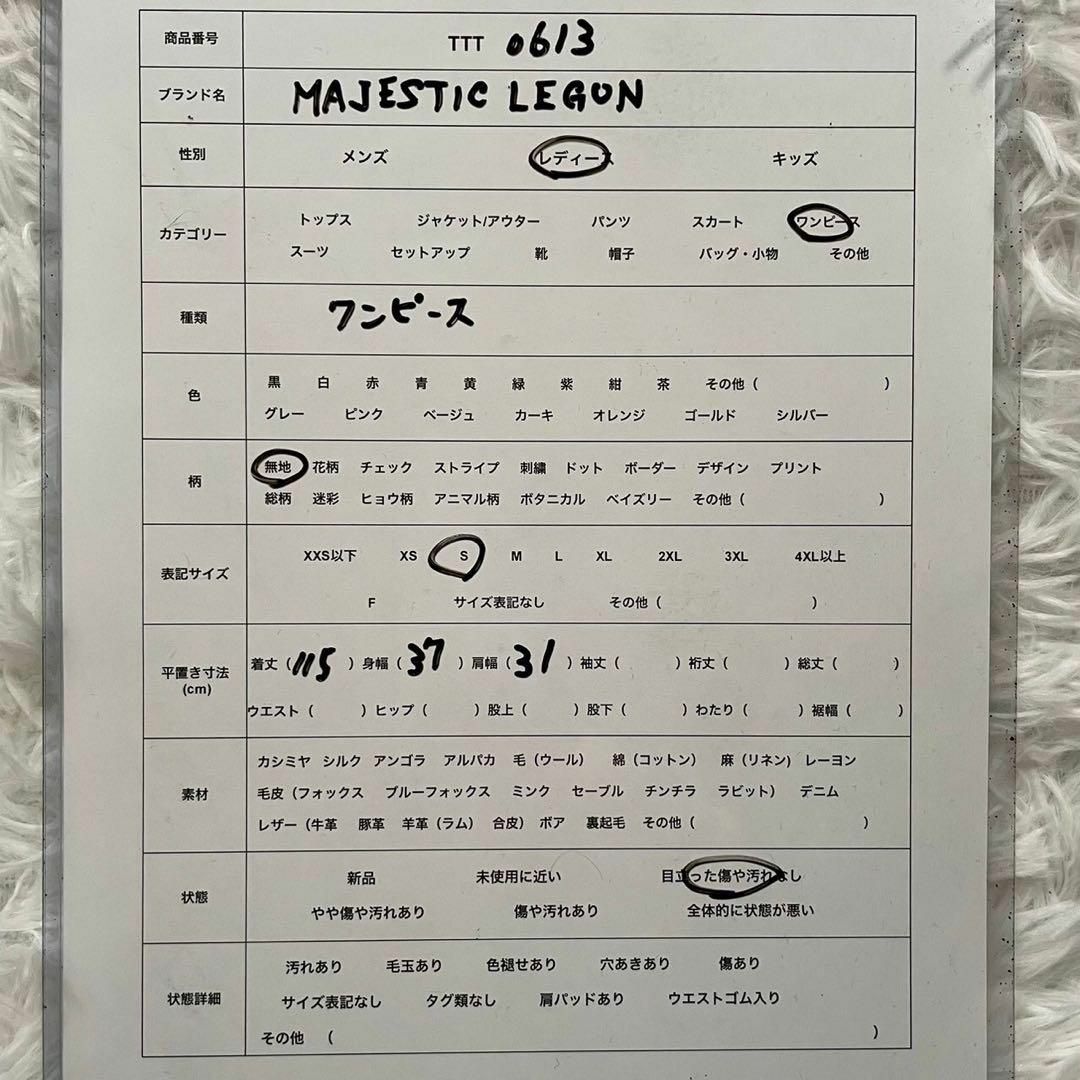 商品番号 TTT 0613
ブランド名 MAJESTIC LEGON
性別 メンズ レディース キッズ
カテゴリー
トップス ジャケット/アウター パンツ スカート ワンピース
スーツ セットアップ 靴 帽子 バッグ・小物 その他
種類 ワンピース
色
黒 白 赤 青 黄 緑 紫 紺 茶 その他（ ）
グレー ピンク ベージュ カーキ オレンジ ゴールド シルバー
柄
無地 花柄 チェック ストライプ 刺繍 ドット ボーダー デザイン プリント
総柄 迷彩 ヒョウ柄 アニマル柄 ボタニカル ペイズリー その他（ ）
表記サイズ
XXS以下 XS S M L XL 2XL 3XL 4XL以上
F サイズ表記なし その他（ ）
平置き寸法
(cm)
着丈（115）身幅（37）肩幅（31）袖丈（ ）裄丈（ ）総丈（ ）
ウエスト（ ）ヒップ（ ）股上（ ）股下（ ）わたり（ ）裾幅（ ）
素材
カシミヤ シルク アンゴラ アルパカ 毛（ウール） 綿（コットン） 麻（リネン） レーヨン
毛皮（フォックス ブルーフォックス ミンク セーブル チンチラ ラビット） デニム
レザー（牛革 豚革 羊革（ラム） 合皮） ボア 裏起毛 その他（ ）
状態
新品 未使用に近い 目立った傷や汚れなし
やや傷や汚れあり 傷や汚れあり 全体的に状態が悪い
状態詳細
汚れあり 毛玉あり 色褪せあり 穴あきあり 傷あり
サイズ表記なし タグ類なし 肩パッドあり ウエストゴム入り
その他 （ ）